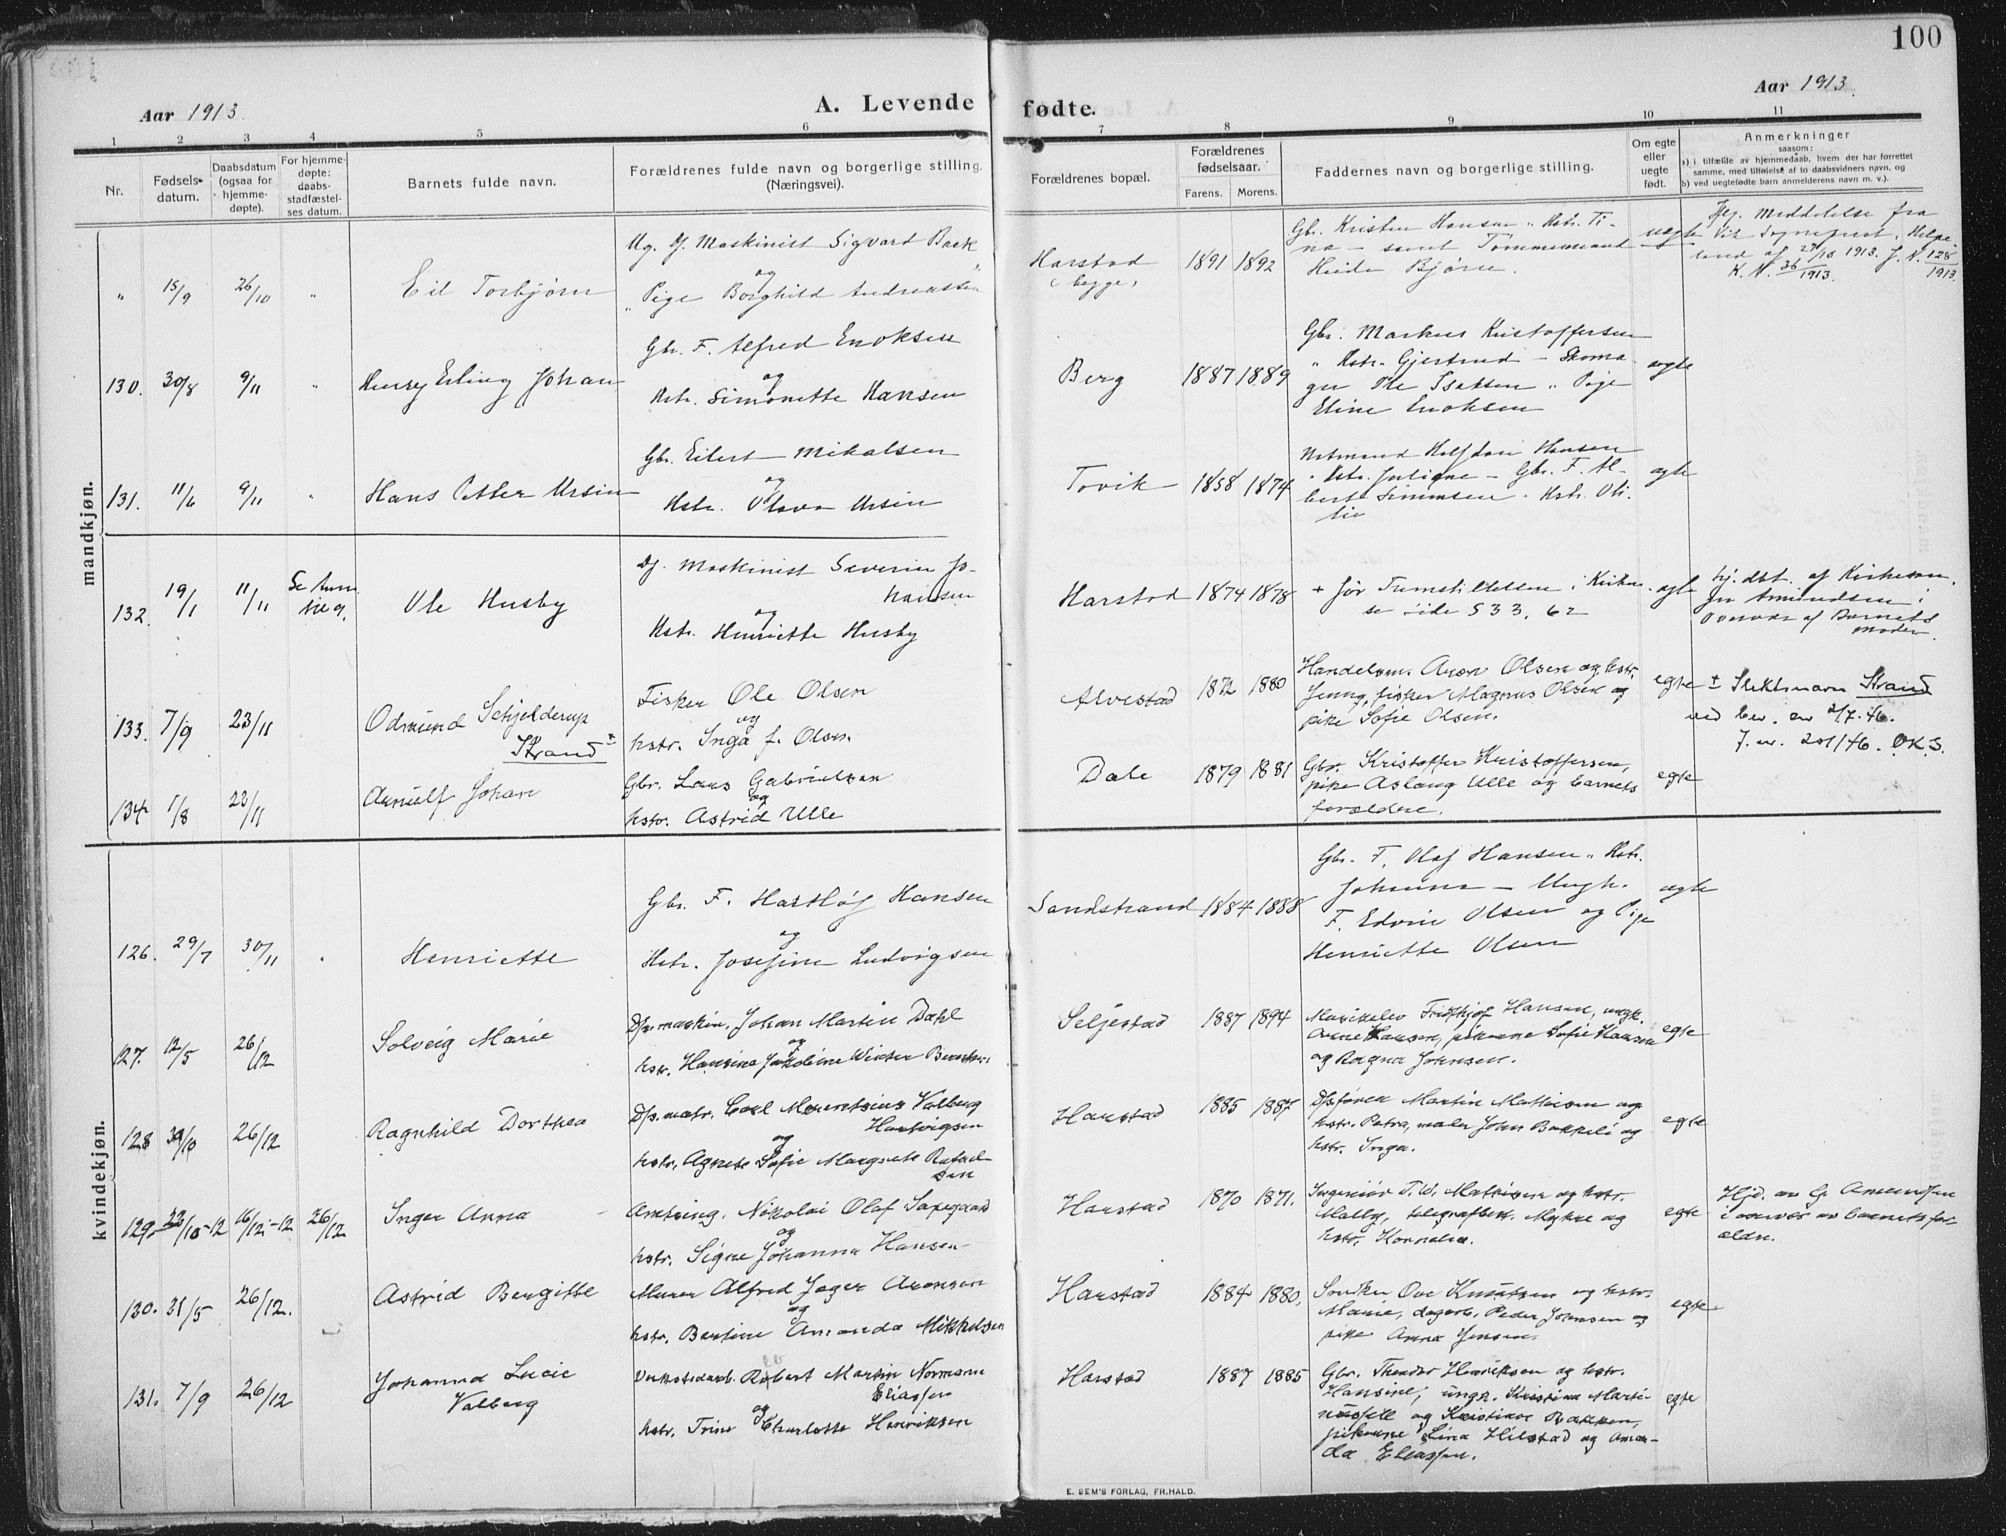 100
Aar 1913.
A. Levende fødte.
Aar 1913.
1 2 3 4 5 6 7 8 9 10 11
Nr.
Fødsels-
datum.
Daabsdatum
(ogsaa for
hjemme-
døpte).
For hjemme-
døpte:
daabs-
stadfæstel-
ses datum.
Barnets fulde navn.
Forældrenes fulde navn og borgerlige stilling.
(Næringsvei).
Forældrenes bopæl.
Forældrenes
fødselsaar.
Farens. Morens.
Faddernes navn og borgerlige stilling.
Om egte
eller
uegte
født.
Anmerkninger
saasom:
a) i tilfælde av hjemmedaab, hvem der har forrettet
samme, med tilføielse af to daabsvidners navn, og
b) ved uegtefødte barn anmelderens navn m. v.).
mandkjøn.
" 15/9 26/10 "
Eil Torbjørn
Ug. Maskinist Sigvard Back
og
Pige Borghild Andreassen
Harstad
(begge)
1891 1892
Gbr. Kristen Hansen, Hstr. Ti-
na - samt Tømmermand
Bjørn.
uegte
Meddelelse fra
Sogneprest
1913. J. N. 128/1913.
K. N. 36/1913.
130. 30/8 9/11 "
Henry Erling Johan
Gbr. F. Alfred Enoksen
og
Hstr. Simonette Hansen
Berg
1887 1889
Gbr. Markus Kristoffersen
" Hstr. Gjertrud - Skoma-
ger Ole Isaksen " Pige
Eline Enoksen
ægte
131. 11/6 9/11 "
Hans Petter Ursin
Gbr. Eilert Mikalsen
og
Hstr. Olava Ursin
Tovik
1858 1874
Notmand Halfdan Hansen
Hstr. - Gbr. F. Al-
bert Simonsen. Hstr. Oli-
lie
ægte
132. 19/1 11/11 Se Anm.
Ole Husby
Dj. Maskinist Severin Jo-
hansen
og
Hstr. Henriette Husby
Harstad
1874 1878
+ før Fremstillelsen i Kirken.
se side 533, 62
ægte
Hj. dbt. af Kirkesan-
ger Amundsen i
overvær af Barnets
moder.
133. 7/9 23/11
Odmund Schjelderup
Strand +
Fisker Ole Olsen
og
hstr. Inga f. Olsen.
Alvestad
1872 1880
Handelsm. Aron Olsen og hstr.
Jenny, fisker Magnus Olsen og
pike Sofie Olsen.
egte
+ Slektsnavn Strand
ved bev. av 2/7-46.
J. nr. 201/46. O.K.S.
134. 1/8 23/11
Arnulf Johan
Gbr. Lars Gabrielsen
og
hstr. Astrid Ulle
Dale
1879 1881
Gbr. Kristoffer Kristoffersen,
pike Aslaug Ulle og barnets
forældre.
egte
kvindekjøn.
126. 29/7 30/11 "
Henriette
Gbr. F. Hartløf Hansen
og
Hstr. Josefine Ludvigsen
Sandstrand
1884 1888
Gbr. F. Olaf Hansen " Hstr.
Johanna - Ungk.
F. Edvin Olsen og Pige
Henriette Olsen
ægte
127. 12/5 26/12
Solveig Marie
D/s.maskin. Johan Martin Dahl
og
hstr. Hansine Jakobine Winter
Seljestad
1887 1894
Fridthjof Hansen, ungk.
Arne Hansen, pikerne Sofie Hansen
og Ragna Johnsen.
egte
128 30/10 26/12
Ragnhild Dorthea
D/s.matr. Carl Mourentzius Valberg
Hartvigsen
og
hstr. Agnete Sofie Margrete Rafael-
sen
Harstad
1885 1887
D/s.fører Martin Mathisen og
hstr. Petra, maler John Bakkeli og
hstr. Inga.
egte
129. 22/10-12 16/12-12 26/12
Inger Anna
Amtsing. Nikolai Olaf Saxegaard
og
hstr. Signe Johanna Hansen
Harstad
1870 1871.
Ingeniør T. W. Mathisen og hstr.
Mally, telegrafbest. Mykre og
hstr. Kornelia.
egte
Hjd. av G. Amundsen
i overvær av barnets for-
ældre.
130. 31/5 26/12.
Astrid Bergitte
Murer Alfred Jager Aronsen
og
hstr. Bertine Amanda Mikkelsen
Harstad
1884 1880.
Snedker Ove Knutsen og hstr.
Marie, dagarb. Peder Johnsen og
pike Anna Jensen.
egte
131. 7/9 26/12
Johanna Lucie
Valberg
Verkstedarb. Robert Martin Normann
Eliassen
og
hstr. Trine Charlotte Henriksen
Harstad
1887 1885
Gbr. Theodor Henriksen og hstr.
Hansine, ungk. Kristian Marti-
nussen og Kristian Bakken,
pikerne Lina Hilstad og Aman-
da Eliassen.
egte
E. SEM'S FORLAG, FR.HALD.